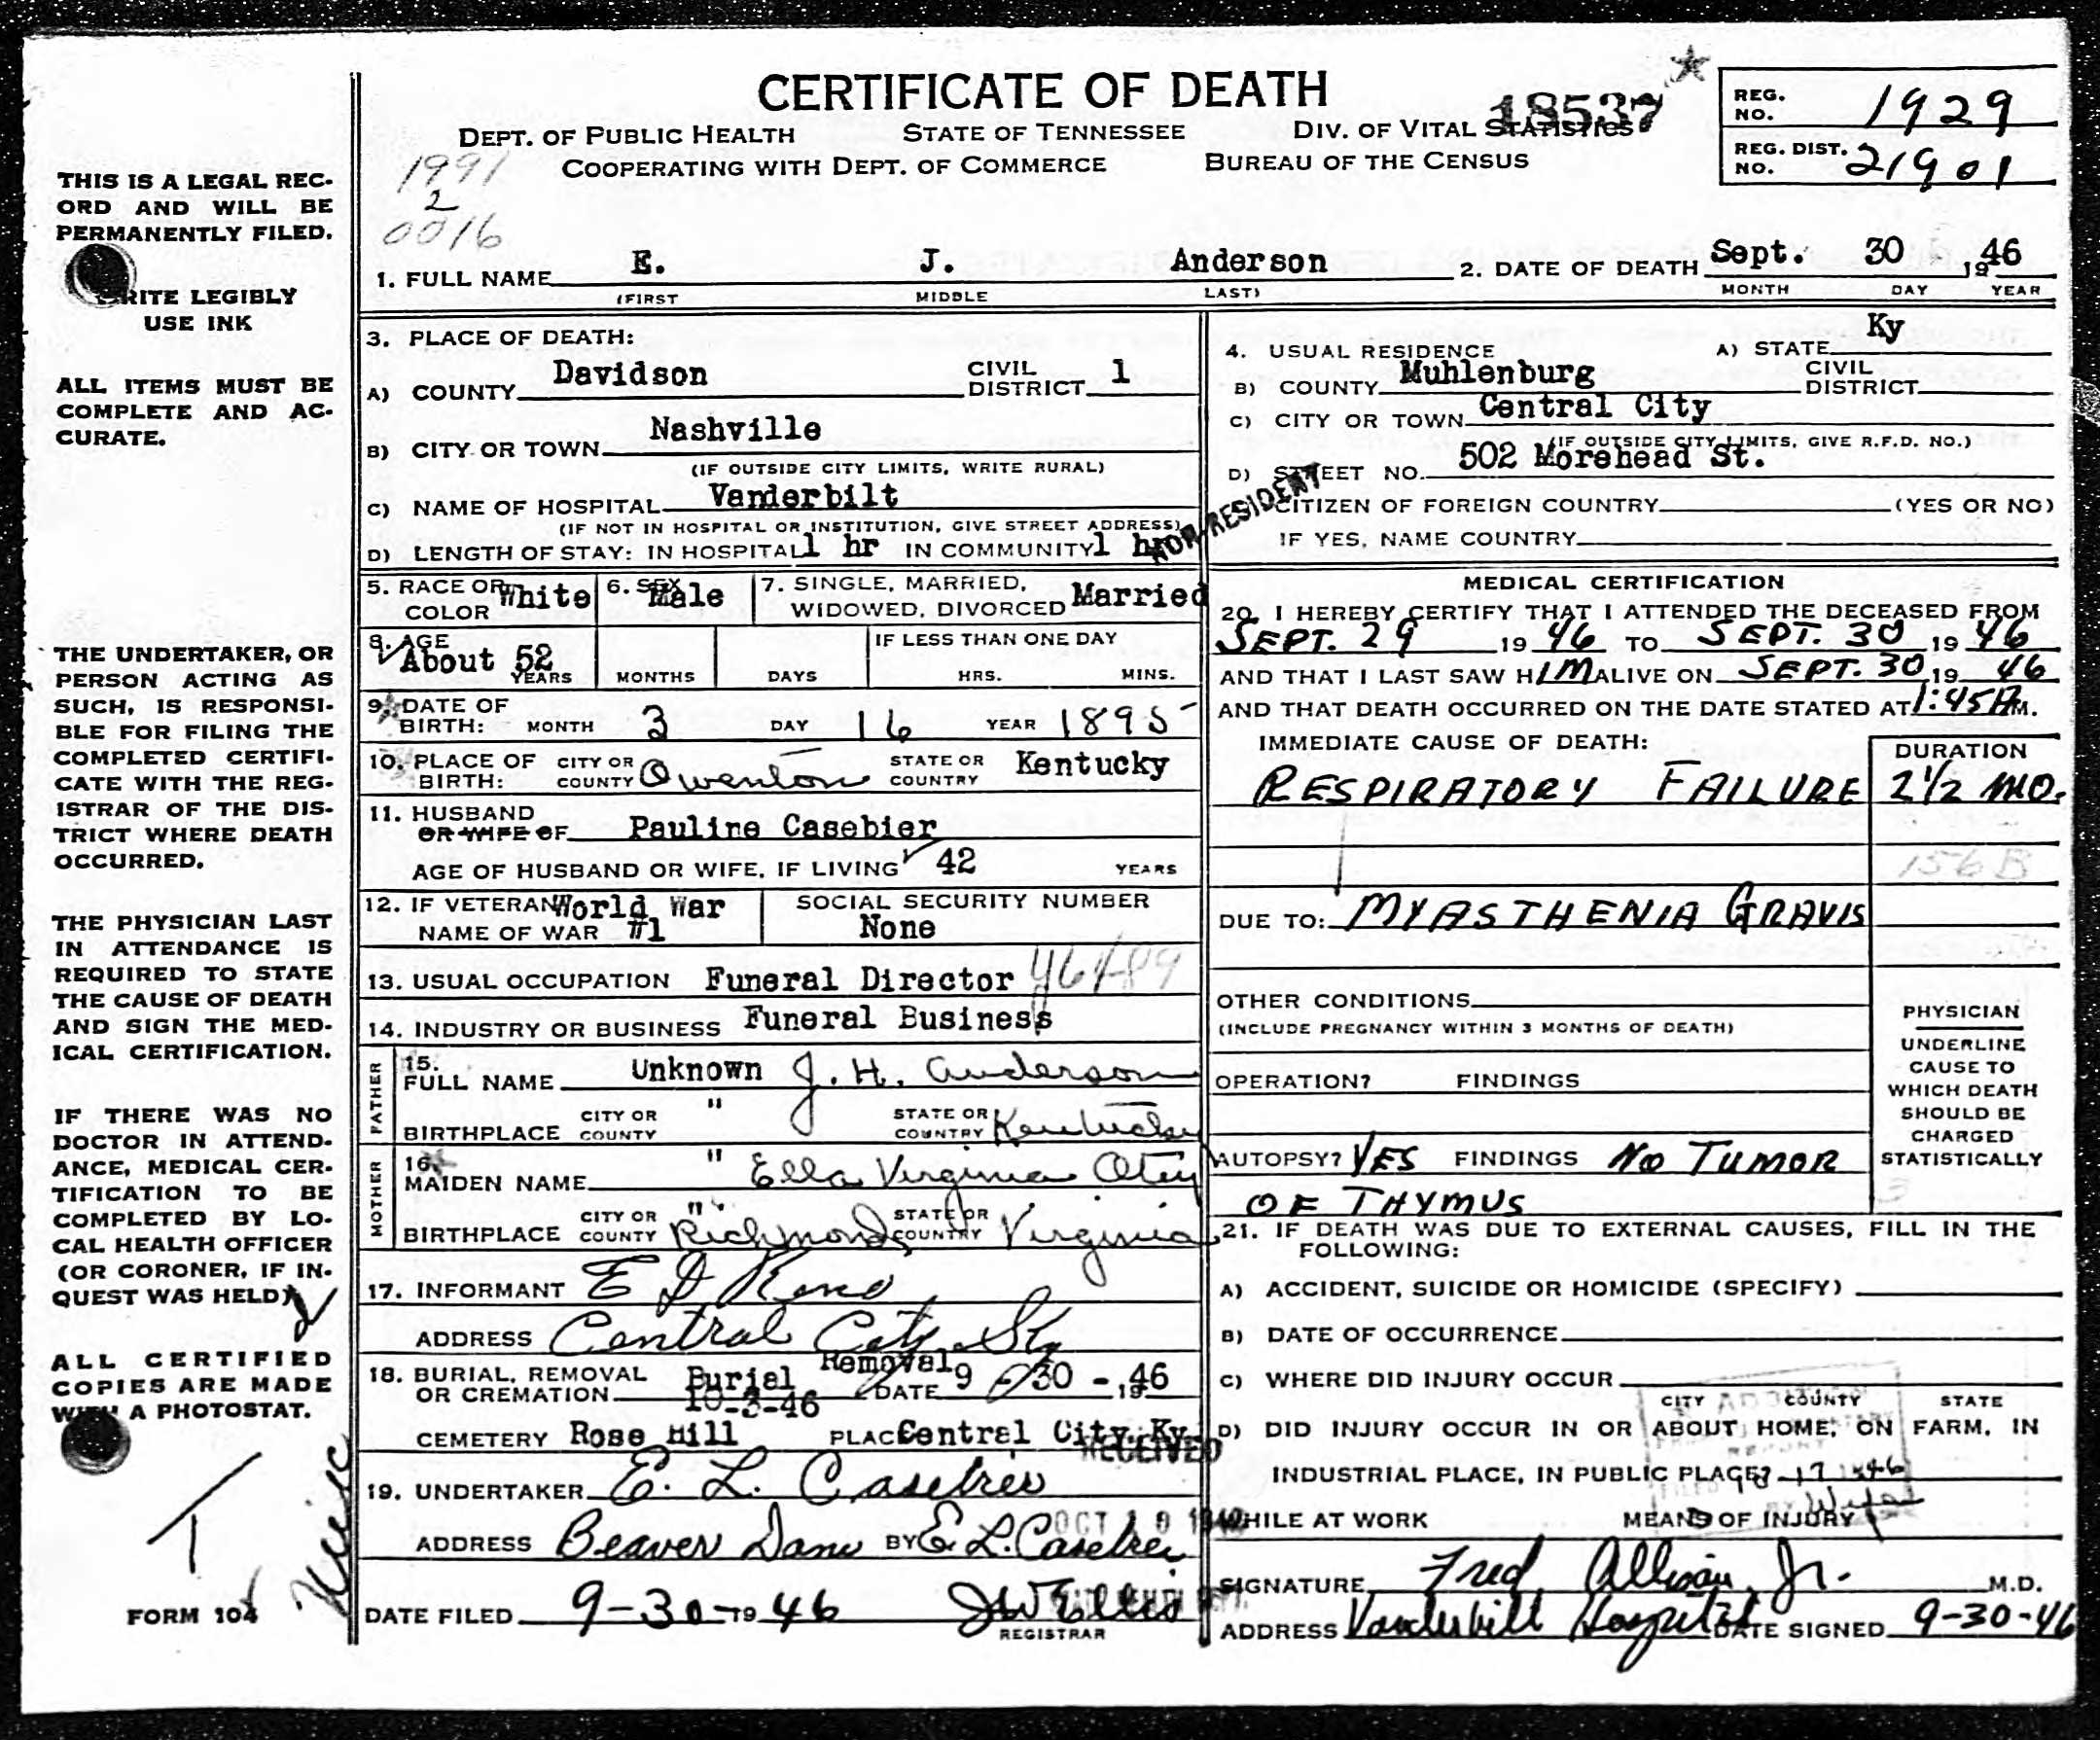 CERTIFICATE OF DEATH
18537
DEPT. OF PUBLIC HEALTH STATE OF TENNESSEE DIV. OF VITAL STATISTICS
COOPERATING WITH DEPT. OF COMMERCE BUREAU OF THE CENSUS
REG. NO. 1929
REG. DIST. NO. 21901
1991
2
0016
THIS IS A LEGAL REC-
ORD AND WILL BE
PERMANENTLY FILED.
WRITE LEGIBLY
USE INK
ALL ITEMS MUST BE
COMPLETE AND AC-
CURATE.
THE UNDERTAKER, OR
PERSON ACTING AS
SUCH, IS RESPONSI-
BLE FOR FILING THE
COMPLETED CERTIFI-
CATE WITH THE REG-
ISTRAR OF THE DIS-
TRICT WHERE DEATH
OCCURRED.
THE PHYSICIAN LAST
IN ATTENDANCE IS
REQUIRED TO STATE
THE CAUSE OF DEATH
AND SIGN THE MED-
ICAL CERTIFICATION.
IF THERE WAS NO
DOCTOR IN ATTEND-
ANCE, MEDICAL CER-
TIFICATION TO BE
COMPLETED BY LO-
CAL HEALTH OFFICER
(OR CORONER, IF IN-
QUEST WAS HELD)
ALL CERTIFIED
COPIES ARE MADE
WITH A PHOTOSTAT.
FORM 104
1. FULL NAME E. J. Anderson 2. DATE OF DEATH Sept. 30 1946
(FIRST MIDDLE LAST) MONTH DAY YEAR
3. PLACE OF DEATH:
A) COUNTY Davidson CIVIL DISTRICT 1
B) CITY OR TOWN Nashville
(IF OUTSIDE CITY LIMITS, WRITE RURAL)
C) NAME OF HOSPITAL Vanderbilt
(IF NOT IN HOSPITAL OR INSTITUTION, GIVE STREET ADDRESS)
D) LENGTH OF STAY: IN HOSPITAL 1 hr IN COMMUNITY 1 hr
NON-RESIDENT
4. USUAL RESIDENCE A) STATE Ky
B) COUNTY Muhlenburg CIVIL DISTRICT
C) CITY OR TOWN Central City
(IF OUTSIDE CITY LIMITS, GIVE R.F.D. NO.)
D) STREET NO. 502 Morehead St.
CITIZEN OF FOREIGN COUNTRY (YES OR NO)
IF YES, NAME COUNTRY
5. RACE OR COLOR White 6. SEX Male 7. SINGLE, MARRIED, WIDOWED, DIVORCED Married
8. AGE About 52 YEARS MONTHS DAYS IF LESS THAN ONE DAY HRS. MINS.
9. DATE OF BIRTH: MONTH 3 DAY 16 YEAR 1895
10. PLACE OF BIRTH: CITY OR COUNTY Owenton STATE OR COUNTRY Kentucky
11. HUSBAND OR WIFE OF Pauline Casebier
AGE OF HUSBAND OR WIFE, IF LIVING 42 YEARS
12. IF VETERAN NAME OF WAR World War #1 SOCIAL SECURITY NUMBER None
13. USUAL OCCUPATION Funeral Director
14. INDUSTRY OR BUSINESS Funeral Business
FATHER
15. FULL NAME Unknown J. H. Anderson
BIRTHPLACE CITY OR COUNTY " STATE OR COUNTRY Kentucky
MOTHER
16. MAIDEN NAME " Ella Virginia Otey
BIRTHPLACE CITY OR COUNTY " Richmond STATE OR COUNTRY Virginia
17. INFORMANT E D Reno
ADDRESS Central City Ky
18. BURIAL, REMOVAL OR CREMATION Burial 10-3-46 Removal DATE 9-30-1946
CEMETERY Rose Hill PLACE Central City, Ky.
RECEIVED
19. UNDERTAKER E. L. Casebier
OCT 10 194
ADDRESS Beaver Dam BY E. L. Casebier
DATE FILED 9-30-1946 J W Ellis
REGISTRAR
MEDICAL CERTIFICATION
20. I HEREBY CERTIFY THAT I ATTENDED THE DECEASED FROM
SEPT. 29 1946 TO SEPT. 30 1946
AND THAT I LAST SAW HIM ALIVE ON SEPT. 30 1946
AND THAT DEATH OCCURRED ON THE DATE STATED AT 1:45 A M.
IMMEDIATE CAUSE OF DEATH: DURATION
RESPIRATORY FAILURE 2 1/2 MO.
156 B
DUE TO: MYASTHENIA GRAVIS
OTHER CONDITIONS
(INCLUDE PREGNANCY WITHIN 3 MONTHS OF DEATH)
OPERATION? FINDINGS
AUTOPSY? YES FINDINGS NO TUMOR
OF THYMUS
PHYSICIAN
UNDERLINE
CAUSE TO
WHICH DEATH
SHOULD BE
CHARGED
STATISTICALLY
3
21. IF DEATH WAS DUE TO EXTERNAL CAUSES, FILL IN THE
FOLLOWING:
A) ACCIDENT, SUICIDE OR HOMICIDE (SPECIFY)
B) DATE OF OCCURRENCE
C) WHERE DID INJURY OCCUR
CITY COUNTY STATE
D) DID INJURY OCCUR IN OR ABOUT HOME, ON FARM, IN
INDUSTRIAL PLACE, IN PUBLIC PLACE?
WHILE AT WORK MEANS OF INJURY
SIGNATURE Fred Allison, Jr. M.D.
ADDRESS Vanderbilt Hospital DATE SIGNED 9-30-46